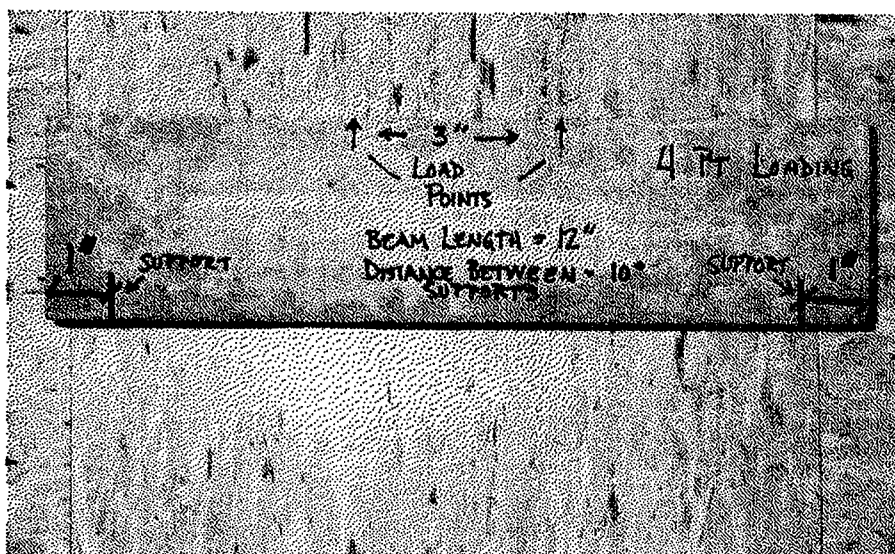 3"
LOAD
POINTS
4 PT LOADING
BEAM LENGTH = 12"
DISTANCE BETWEEN = 10"
SUPPORTS
1"
SUPPORT
SUPPORT
1"